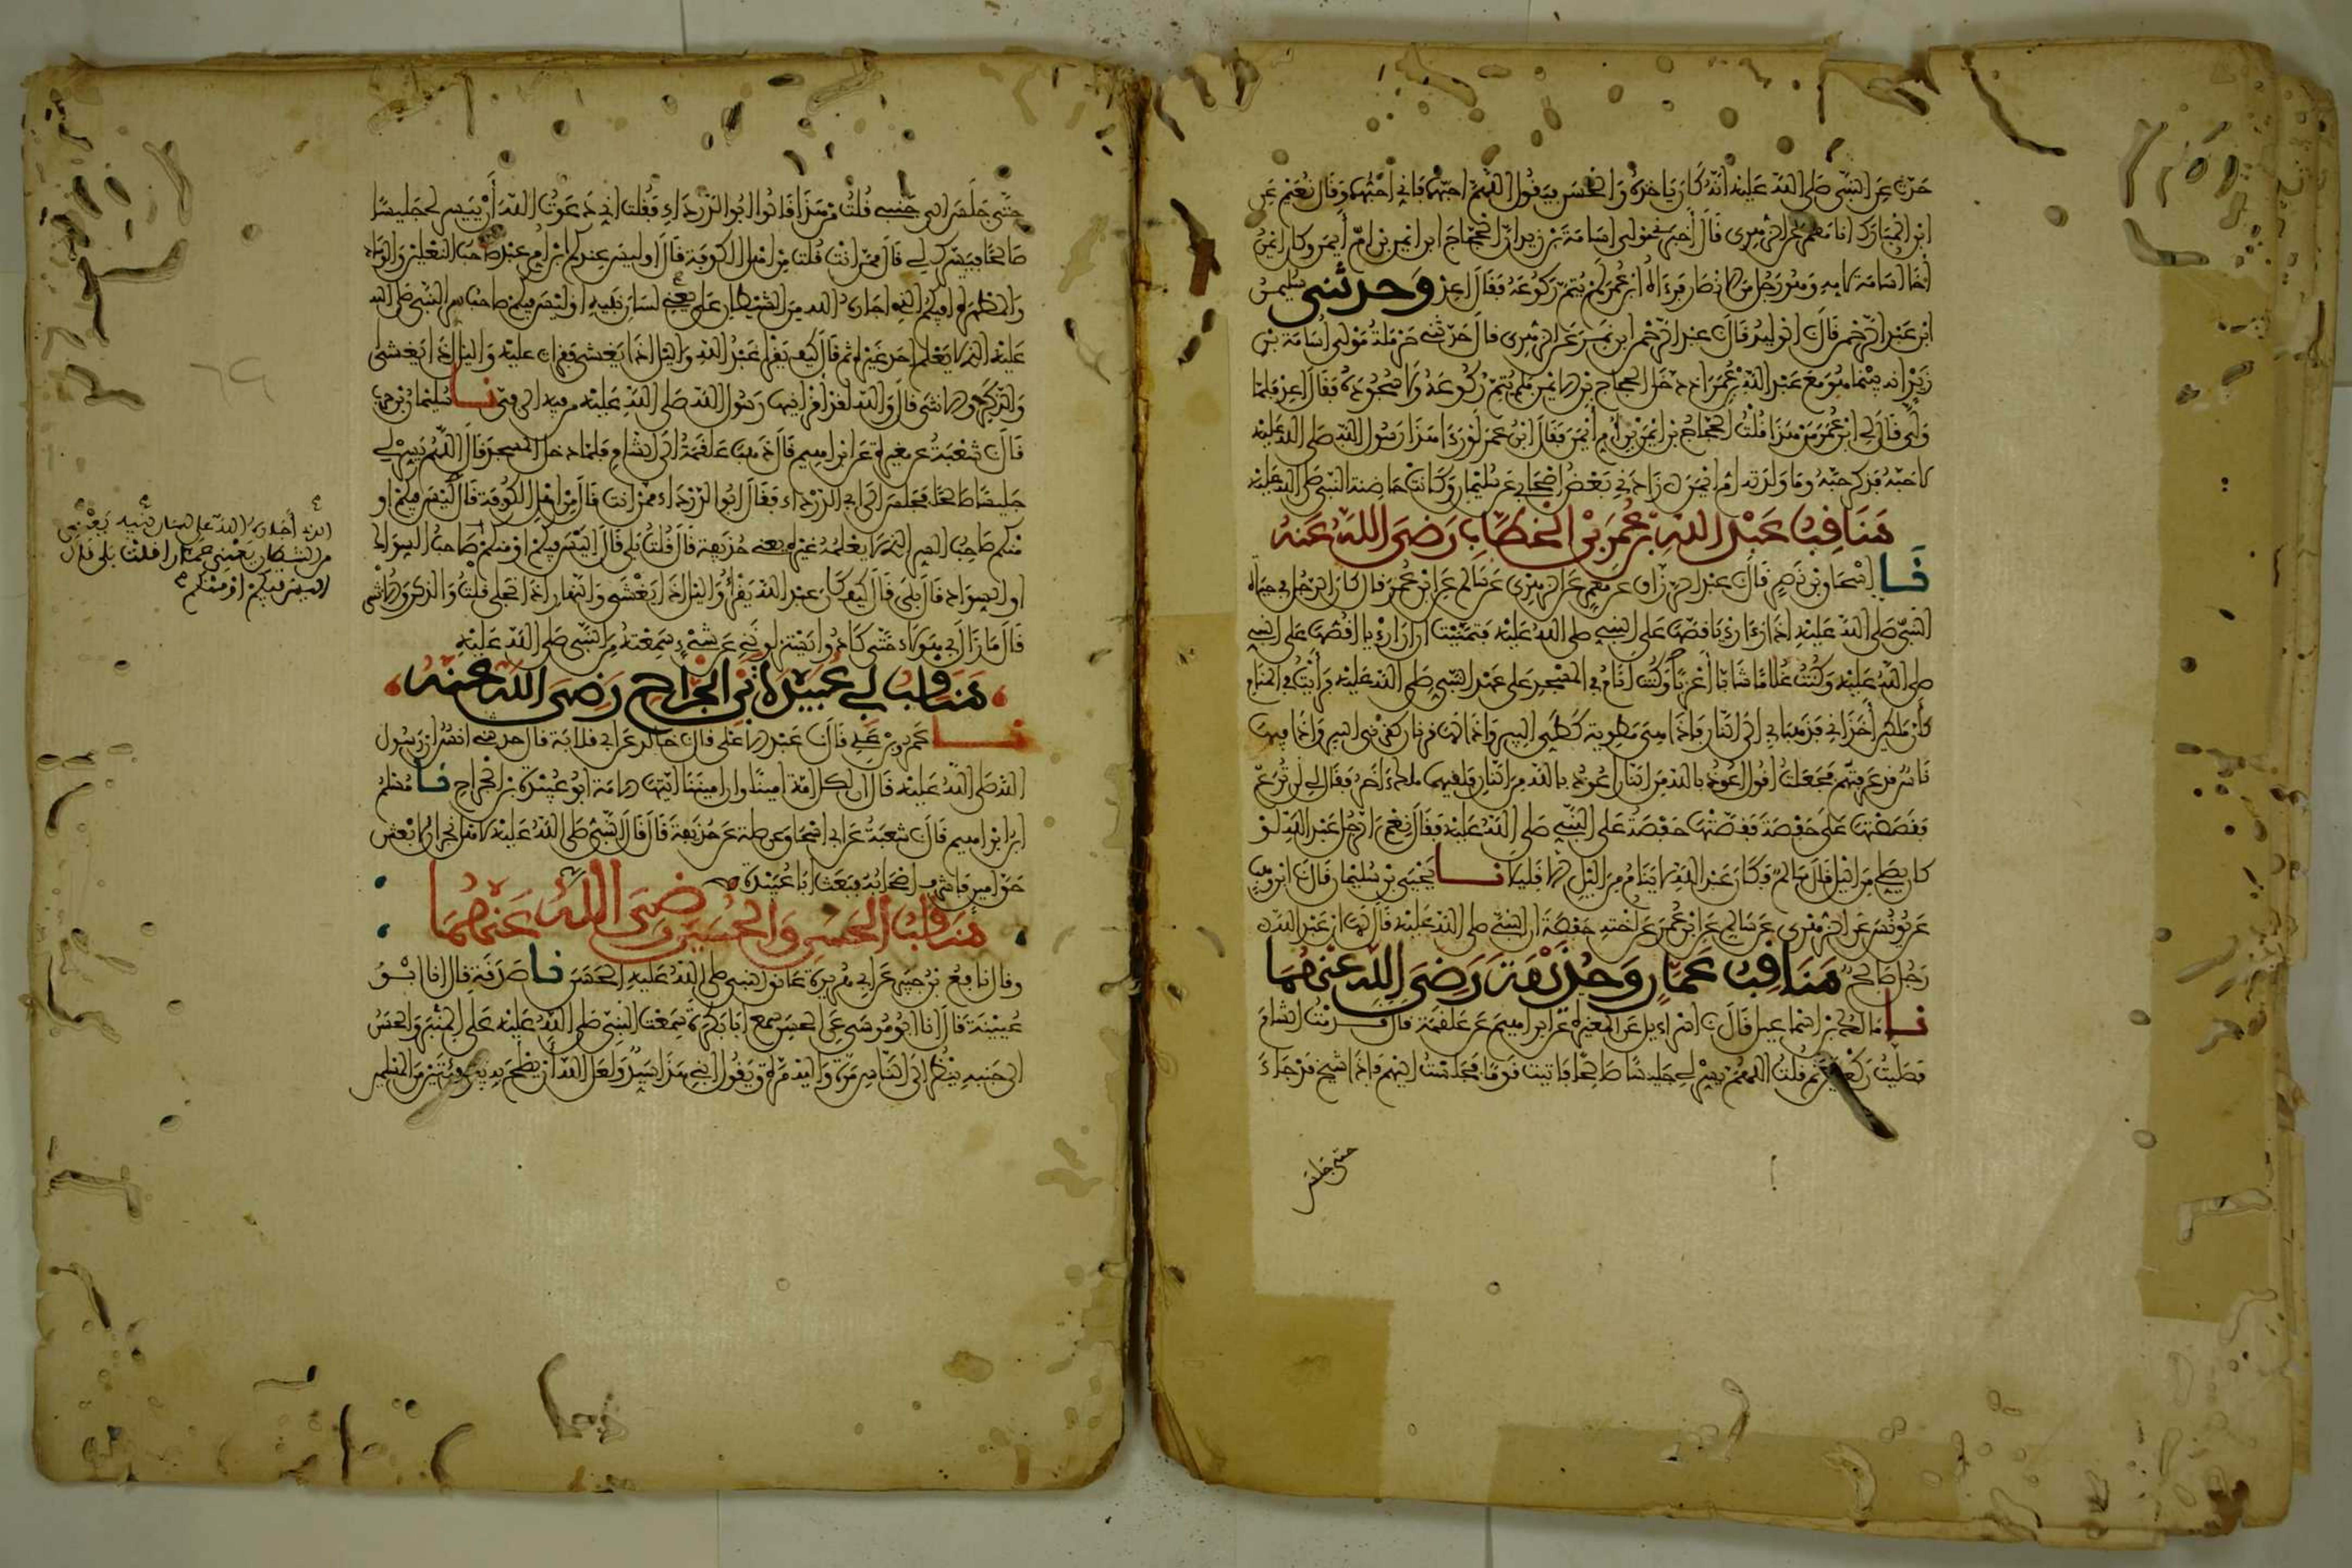 حدث عن النبي صلى الله عليه أنه كان ياخذه والحسن فيقول اللهم أحبهما فإني أحبهما وقال نعيم عن
ابن المبارك أنا معمر عن الزهري قال أخبرني مولى لأسامة بن زيد أن الحجاج ابن أيمن بن أم أيمن وكان أيمن
أخا أسامة لأمه وهو رجل من الأنصار فرءاه ابن عمر لم يتم ركوعه فقال أعد وحدثني سليمن
ابن عبد الرحمن قال نا الوليد قال نا عبد الرحمن ابن نمر عن الزهري قال حدثني حرملة مولى أسامة بن
زيد أنه بينما هو مع عبد الله بن عمر إذ دخل الحجاج بن الأيمن فلم يتم ركوعه ولا سجوده فقال أعد فلما
ولى قال لي ابن عمر من هذا قلت الحجاج بن أيمن بن أم أيمن فقال ابن عمر لو رءا هذا رسول الله صلى الله عليه
لأحبه فذكر حبه وما ولدته أم أيمن زادني بعض أصحابي عن سليمان وكانت حاضنة النبي صلى الله عليه
مناقب عبد الله بن عمر بن الخطاب رضي الله عنه
نا إسحاق بن نصر قال نا عبد الرزاق عن معمر عن الزهري عن سالم عن ابن عمر قال كان الرجل في حياة
النبي صلى الله عليه إذا رءا رءيا قصها على النبي صلى الله عليه فتمنيت أن أرا رءيا أقصها على النبي
صلى الله عليه وكنت غلاما شابا أعزبا وكنت أنام في المسجد على عهد النبي صلى الله عليه فرأيت في المنام
كأن ملكين أخذاني فذهبا بي إلى النار فإذا هي مطوية كطي البير وإذا لها قرنان كقرني البير وإذا فيها
ناس قد عرفتهم فجعلت أقول أعوذ بالله من النار أعوذ بالله من النار فلقيهما ملك ءاخر فقال لي لن ترع
فقصصتها على حفصة فقصتها حفصة على النبي صلى الله عليه فقال نعم الرجل عبد الله لو
كان يصلي من الليل قال سالم فكان عبد الله لا ينام من الليل إلا قليلا نا يحيى بن سليمان قال نا ابن وهب
عن يونس عن الزهري عن سالم عن ابن عمر عن أخته حفصة أن النبي صلى الله عليه قال لها إن عبد الله
رجل صالح مناقب عمار وحذيفة رضي الله عنهما
نا مالك بن إسماعيل قال نا إسراءيل عن المغيرة عن إبراهيم عن علقمة قال قدمت الشام
فصليت ركعتين ثم قلت اللهم يسر لي جليسا صالحا فأتيت قوما فجلست إليهم فإذا شيخ قد جاء
حتى جلس
حتى جلس إلى جنبي قلت من هذا قالوا أبو الدرداء فقلت إني دعوت الله أن ييسر لي جليسا
صالحا فيسرك لي قال ممن أنت قلت من أهل الكوفة قال أوليس عندكم ابن أم عبد صاحب النعلين والوساد
والمطهرة أفيكم الذي أجاره الله من الشيطان يعني على لسان نبيه أوليس فيكم صاحب سر النبي صلى الله
عليه الذي لا يعلم أحد غيره ثم قال كيف يقرأ عبد الله والليل إذا يغشى فقرأت عليه والليل إذا يغشى
والذكر والأنثى قال والله لقد أقرأنيها رسول الله صلى الله عليه من فيه إلى في نا سليمان بن حرب
قال نا شعبة عن مغيرة عن إبراهيم قال ذهب علقمة إلى الشام فلما دخل المسجد قال اللهم يسر لي
جليسا صالحا فجلس إلى أبي الدرداء فقال أبو الدرداء ممن أنت قال من أهل الكوفة قال أليس فيكم أو
منكم صاحب السر الذي لا يعلمه غيره يعني حذيفة قال قلت بلى قال أليس فيكم أو منكم صاحب السواك
أو السواد قال بلى قال كيف كان عبد الله يقرأ والليل إذا يغشى والنهار إذا تجلى قلت والذكر والأنثى
قال ما زال بي هؤلاء حتى كادوا يستنزلونني عن شيء سمعته من النبي صلى الله عليه
مناقب أبي عبيدة بن الجراح رضي الله عنه
نا عمرو بن علي قال نا عبد الأعلى قال نا خالد عن أبي قلابة قال حدثني أنس أن رسول
الله صلى الله عليه قال إن لكل أمة أمينا وإن أميننا أيتها الأمة أبو عبيدة بن الجراح نا مسلم
ابن إبراهيم قال نا شعبة عن أبي إسحاق عن صلة عن حذيفة قال قال النبي صلى الله عليه لأهل نجران لأبعثن
حق أمين فأشرف أصحابه فبعث أبا عبيدة
مناقب الحسن والحسين رضي الله عنهما
وقال نافع بن جبير عن أبي هريرة عانق النبي صلى الله عليه الحسن نا صدقة قال أنا ابن
عيينة قال أنا أبو موسى عن الحسن سمع أبا بكرة سمعت النبي صلى الله عليه على المنبر والحسن
إلى جنبه ينظر إلى الناس مرة وإليه مرة ويقول ابني هذا سيد ولعل الله أن يصلح به بين فئتين من المسلمين
الذي أجاره الله على لسان نبيه يعني
من الشيطان يعني عمارا قلت بلى قال
أليس فيكم أو منكم